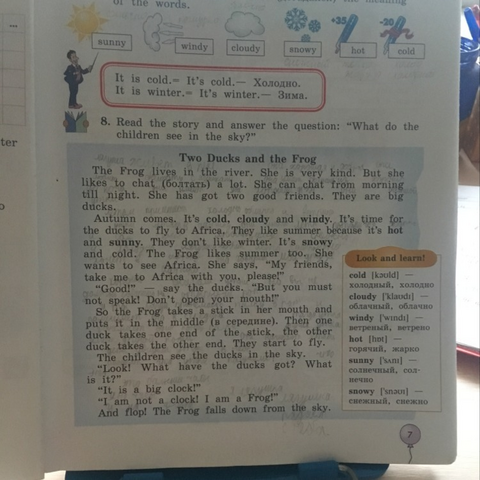 of the words.
+35
-20
sunny
windy
cloudy
snowy
hot
cold
It is cold.= It's cold.— Холодно.
It is winter.= It's winter.— Зима.
8. Read the story and answer the question: "What do the
children see in the sky?"
Two Ducks and the Frog
The Frog lives in the river. She is very kind. But she
likes to chat (болтать) a lot. She can chat from morning
till night. She has got two good friends. They are big
ducks.
Autumn comes. It's cold, cloudy and windy. It's time for
the ducks to fly to Africa. They like summer because it's hot
and sunny. They don't like winter. It's snowy
and cold. The Frog likes summer too. She
wants to see Africa. She says, "My friends,
take me to Africa with you, please!"
"Good!" — say the ducks. "But you must
not speak! Don't open your mouth!"
So the Frog takes a stick in her mouth and
puts it in the middle (в середине). Then one
duck takes one end of the stick, the other
duck takes the other end. They start to fly.
The children see the ducks in the sky.
"Look! What have the ducks got? What
is it?"
"It is a big clock!"
"I am not a clock! I am a Frog!"
And flop! The Frog falls down from the sky.
Look and learn!
cold [kəʊld] —
холодный, холодно
cloudy [ˈklaʊdɪ] —
облачный, облачно
windy [ˈwɪndɪ] —
ветреный, ветрено
hot [hɒt] —
горячий, жарко
sunny [ˈsʌnɪ] —
солнечный, сол-
нечно
snowy [ˈsnəʊɪ] —
снежный, снежно
7
ter